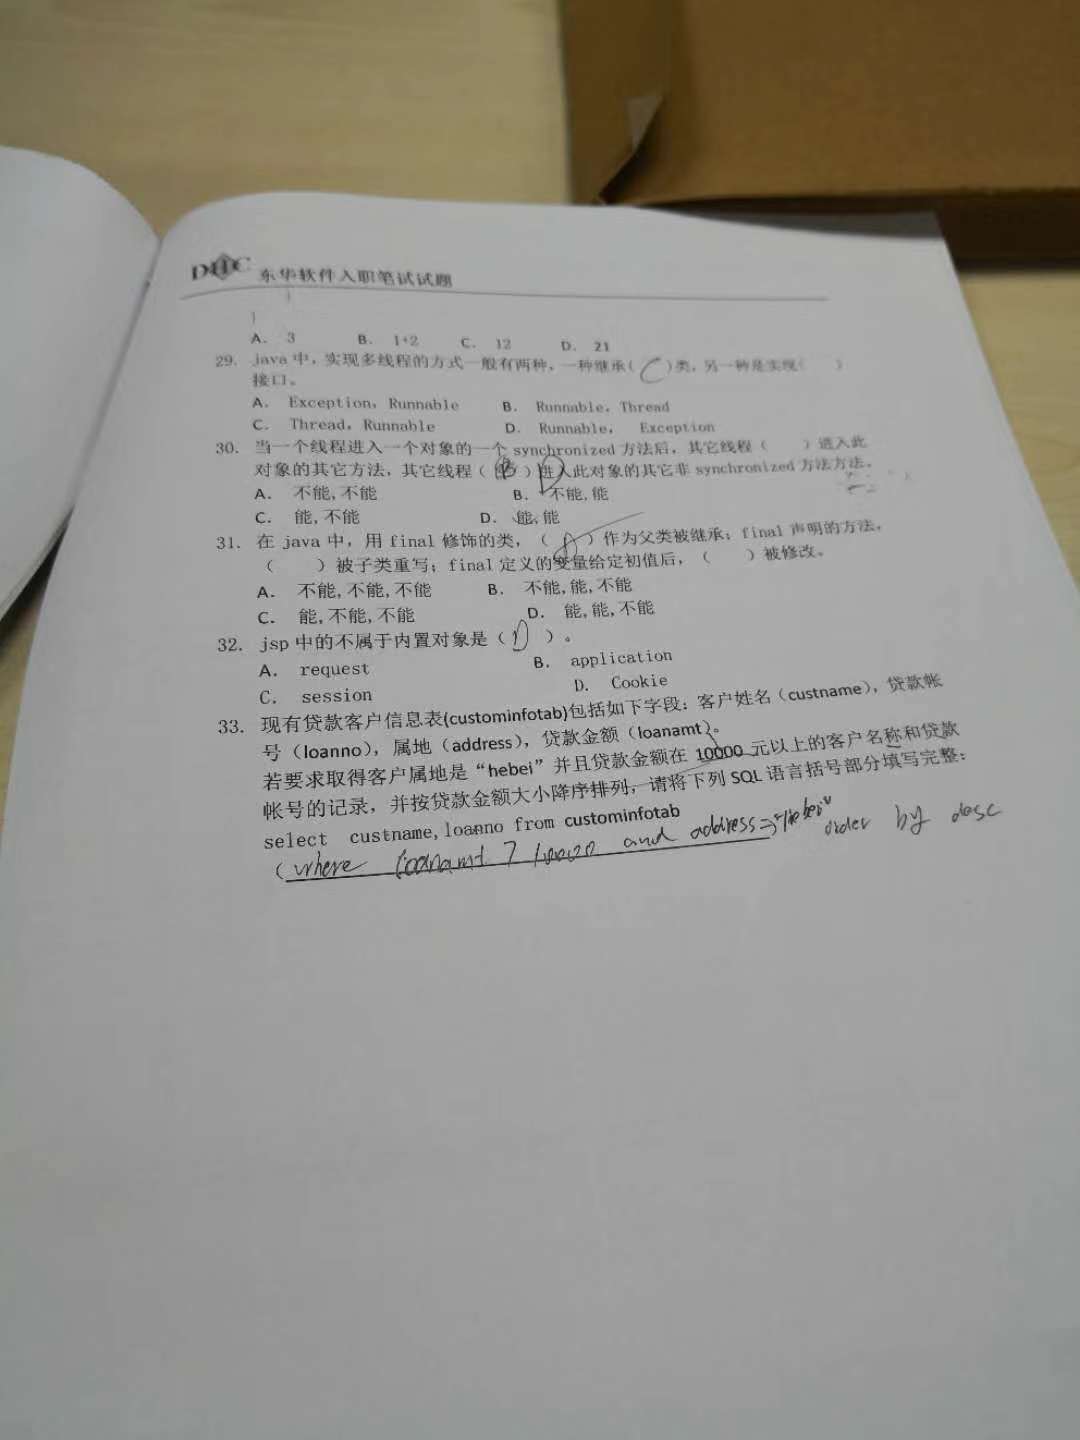 DHC 东华软件入职笔试试题
}
}
A. 3 B. 1+2 C. 12 D. 21
29. java 中，实现多线程的方式一般有两种，一种继承( C )类，另一种是实现( )
接口。
A. Exception，Runnable B. Runnable，Thread
C. Thread，Runnable D. Runnable， Exception
30. 当一个线程进入一个对象的一个 synchronized 方法后，其它线程（ ）进入此
对象的其它方法，其它线程（ ）进入此对象的其它非 synchronized 方法方法。
D
A. 不能,不能 B. 不能,能
C. 能,不能 D. 能,能
31. 在 java 中，用 final 修饰的类，（ A ）作为父类被继承；final 声明的方法，
（ ）被子类重写；final 定义的变量给定初值后，（ ）被修改。
A. 不能,不能,不能 B. 不能,能,不能
C. 能,不能,不能 D. 能,能,不能
32. jsp 中的不属于内置对象是（ D ）。
A. request B. application
C. session D. Cookie
33. 现有贷款客户信息表(custominfotab)包括如下字段：客户姓名（custname），贷款帐
号（loanno），属地（address），贷款金额（loanamt）。
若要求取得客户属地是“hebei”并且贷款金额在 10000 元以上的客户名称和贷款
帐号的记录，并按贷款金额大小降序排列，请将下列 SQL 语言括号部分填写完整：
select custname,loanno from custominfotab
( where loanamt > 10000 and address = "hebei" order by desc